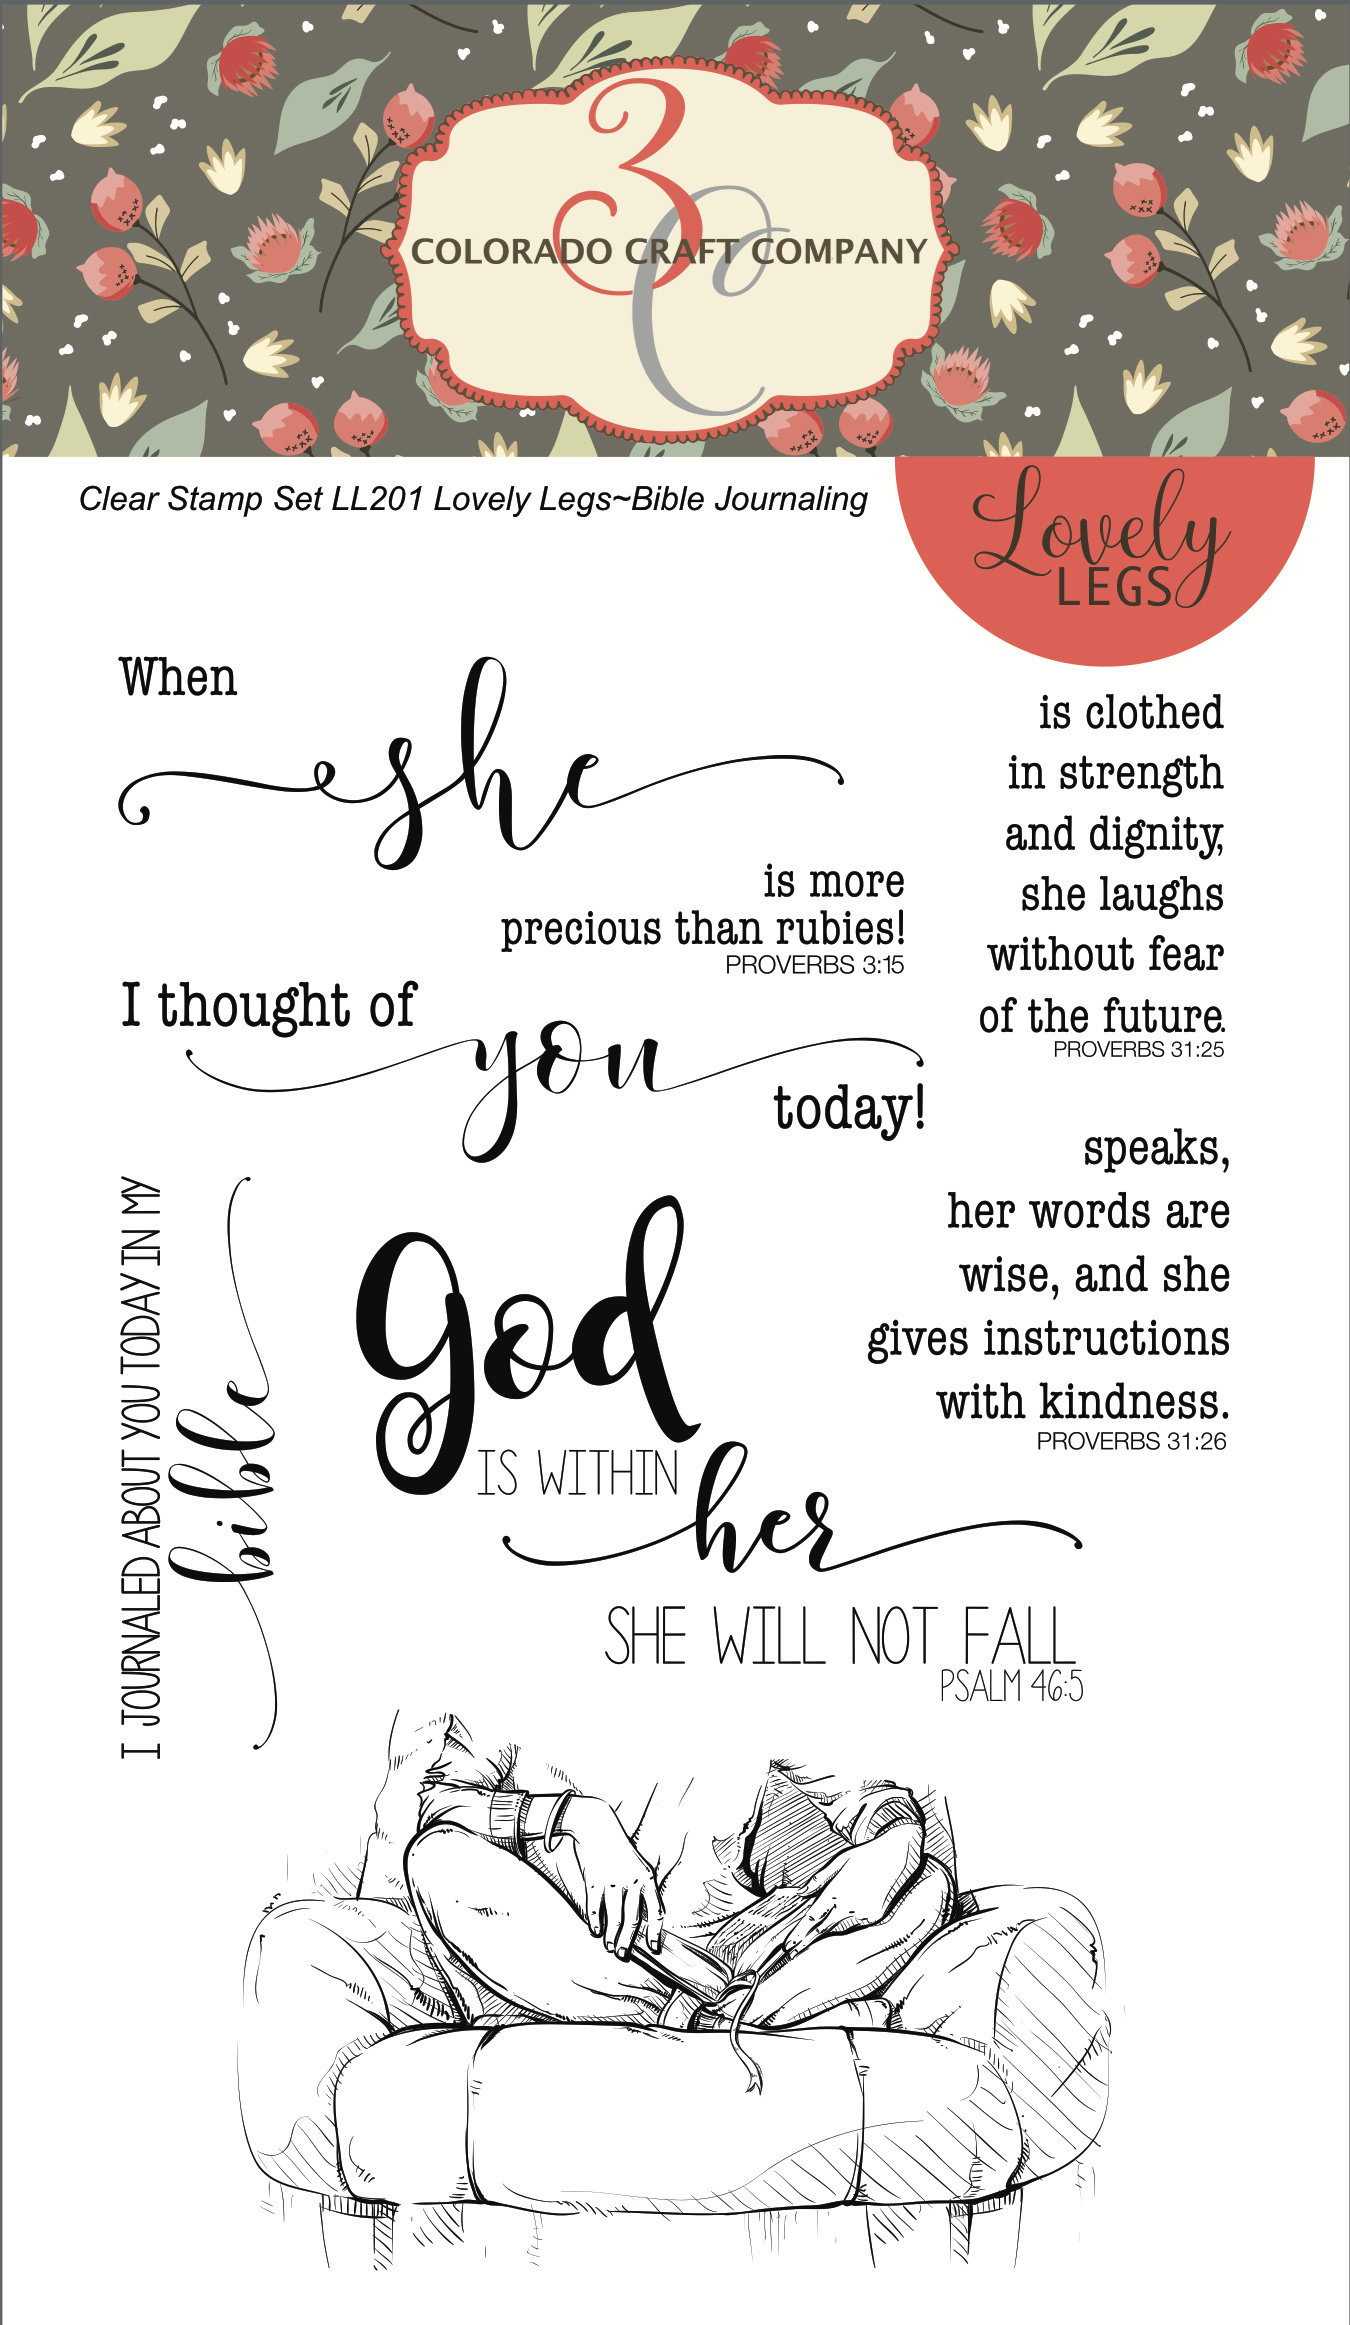 3C
COLORADO CRAFT COMPANY
Clear Stamp Set LL201 Lovely Legs~Bible Journaling
Lovely
LEGS
When
she
is more
precious than rubies!
PROVERBS 3:15
I thought of
you
today!
is clothed
in strength
and dignity,
she laughs
without fear
of the future.
PROVERBS 31:25
speaks,
her words are
wise, and she
gives instructions
with kindness.
PROVERBS 31:26
I JOURNALED ABOUT YOU TODAY IN MY
bible
god
IS WITHIN
her
SHE WILL NOT FALL
PSALM 46:5